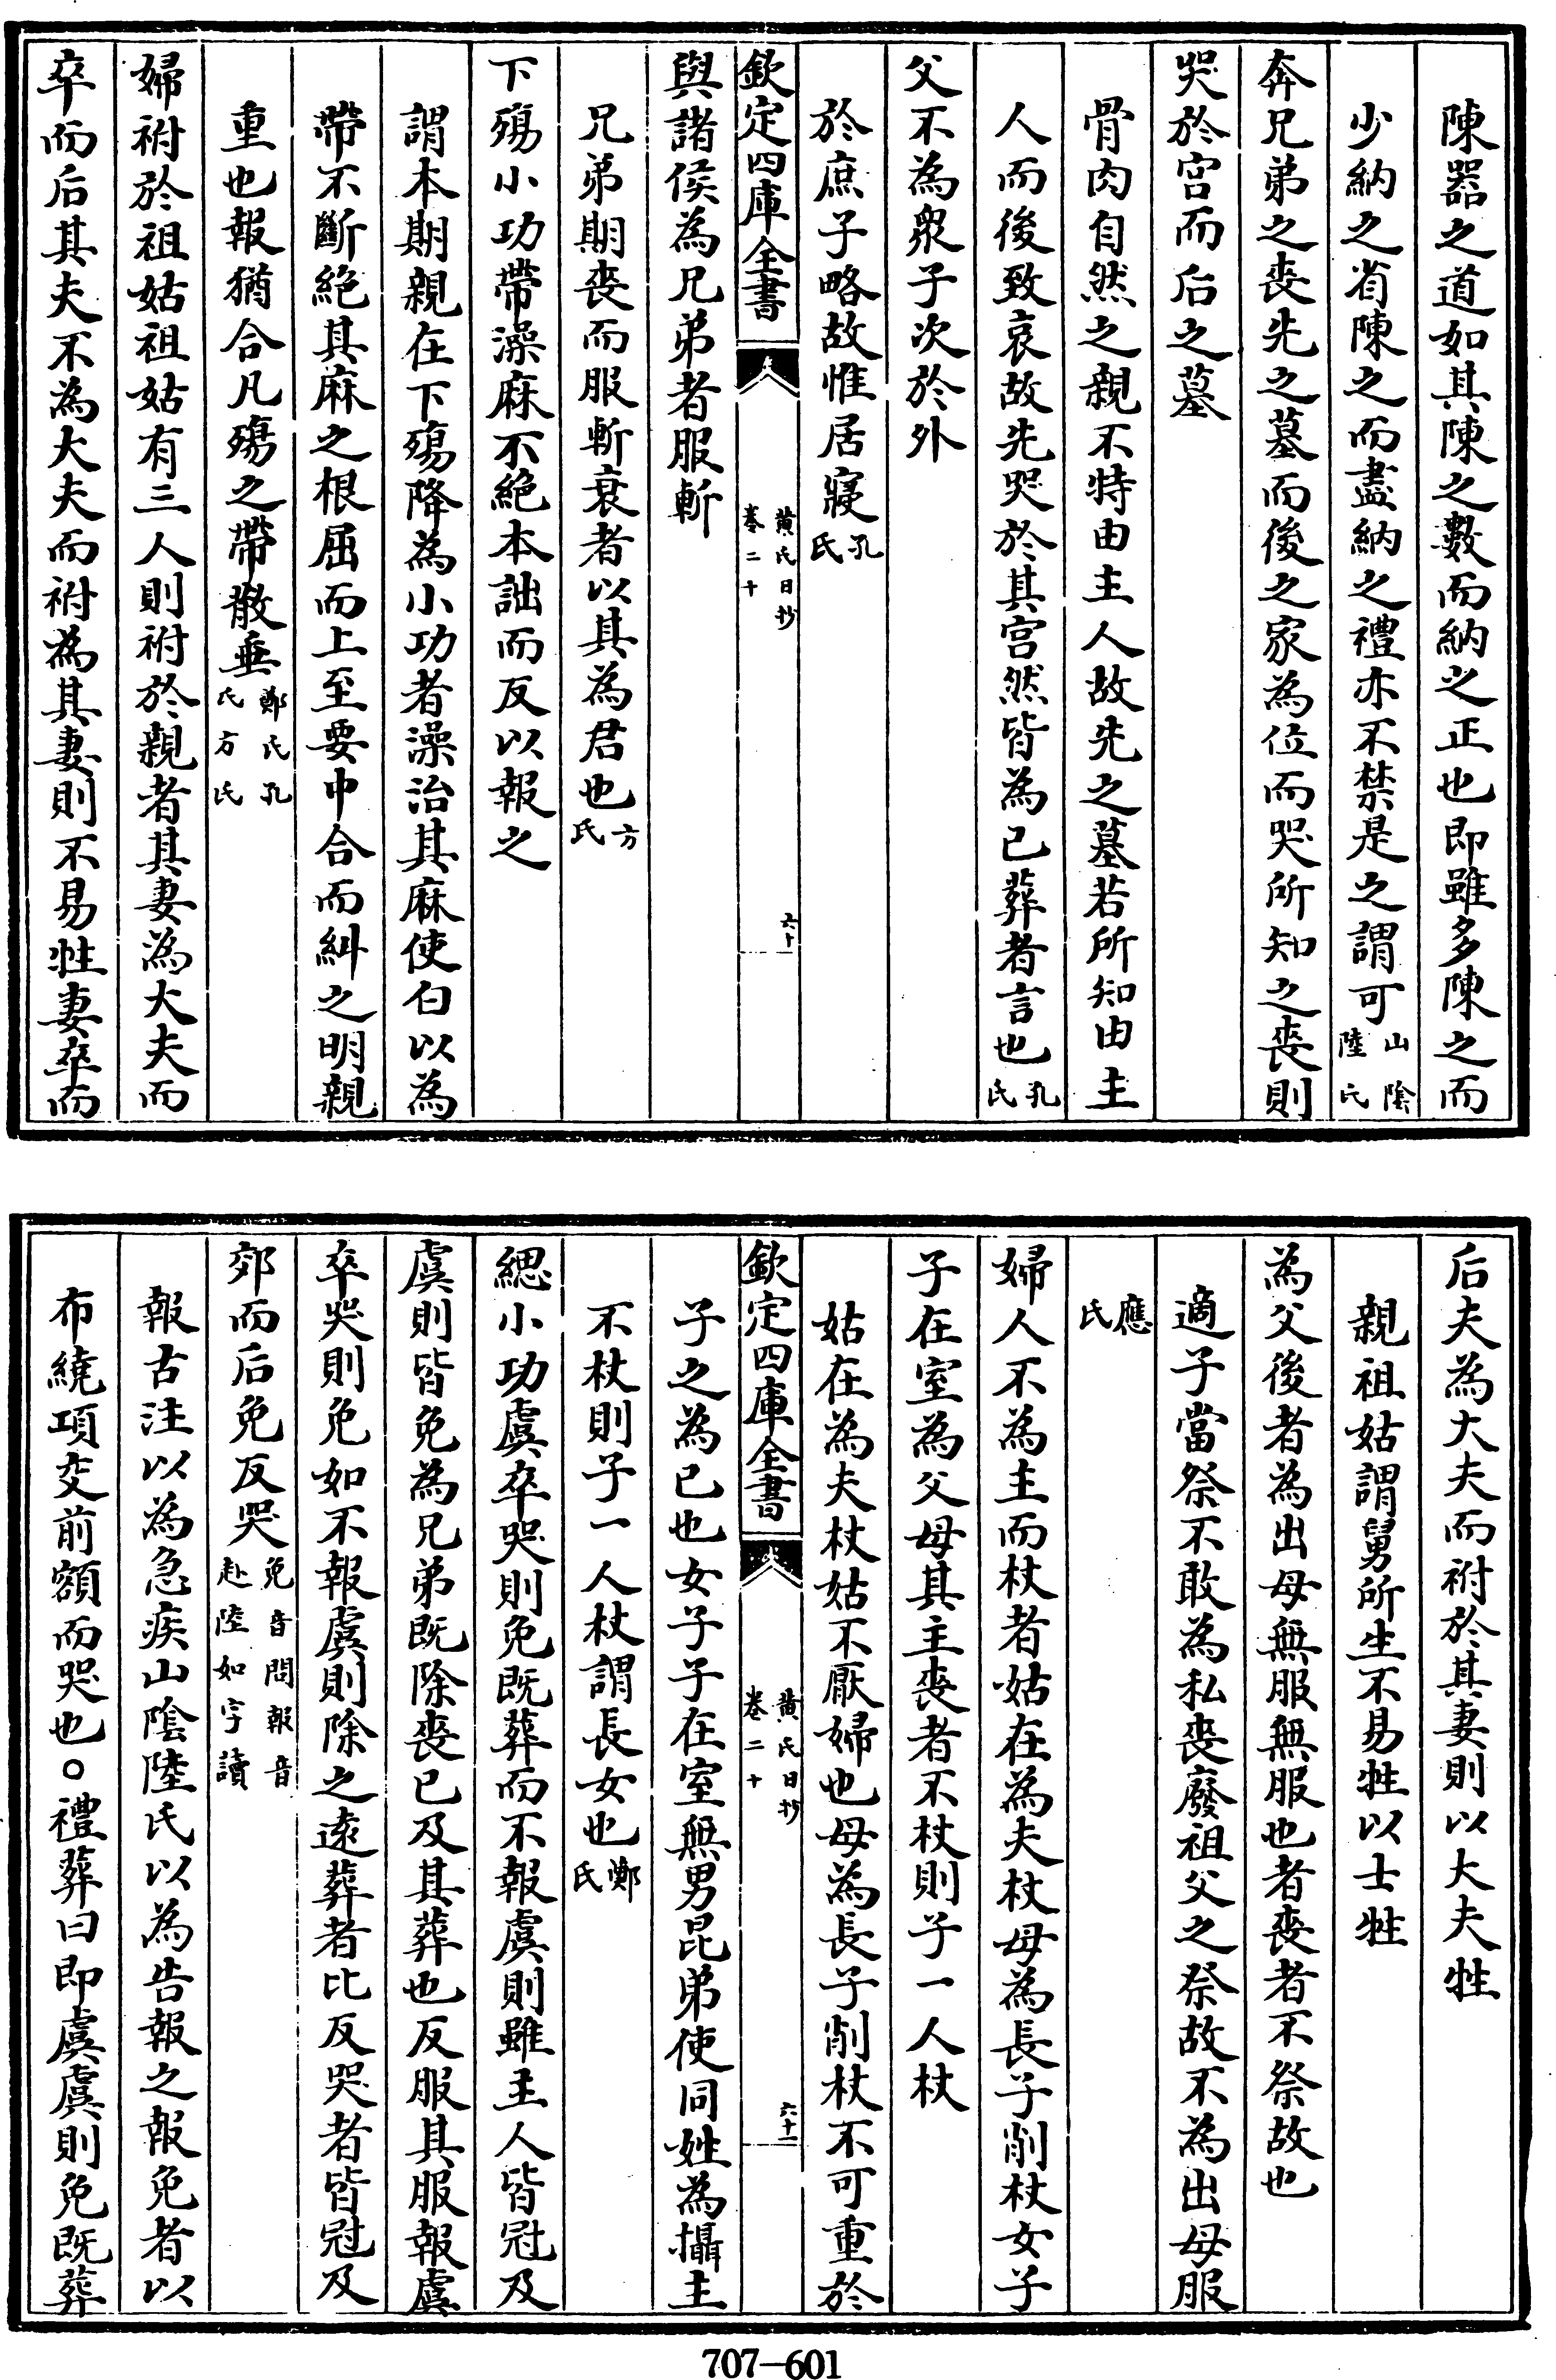 陳器之道如其陳之數而納之正也即雖多陳之而
少納之省陳之而盡納之禮亦不禁是之謂可山陰陸氏
奔兄弟之喪先之墓而後之家為位而哭所知之喪則
哭於宮而后之墓
骨肉自然之親不特由主人故先之墓若所知由主
人而後致哀故先哭於其宮然皆為已葬者言也孔氏
父不為衆子次於外
於庶子略故惟居寢孔氏
欽定四庫全書
黃氏日抄
卷二十
六十
與諸侯為兄弟者服斬
兄弟期喪而服斬衰者以其為君也方氏
下殤小功帶澡麻不絕本詘而反以報之
謂本期親在下殤降為小功者澡治其麻使白以為
帶不斷絕其麻之根屈而上至要中合而糾之明親
重也報猶合凡殤之帶散垂鄭氏孔氏方氏
婦祔於祖姑祖姑有三人則祔於親者其妻為大夫而
卒而后其夫不為大夫而祔為其妻則不易牲妻卒而
后夫為大夫而祔於其妻則以大夫牲
親祖姑謂舅所生不易牲以士牲
為父後者為出母無服無服也者喪者不祭故也
適子當祭不敢為私喪廢祖父之祭故不為出母服
應氏
婦人不為主而杖者姑在為夫杖母為長子削杖女子
子在室為父母其主喪者不杖則子一人杖
姑在為夫杖姑不厭婦也母為長子削杖不可重於
欽定四庫全書
黃氏日抄
卷二十
六十一
子之為已也女子子在室無男昆弟使同姓為攝主
不杖則子一人杖謂長女也鄭氏
緦小功虞卒哭則免既葬而不報虞則雖主人皆冠及
虞則皆免為兄弟既除喪已及其葬也反服其服報虞
卒哭則免如不報虞則除之遠葬者比反哭者皆冠及
郊而后免反哭免音問報音赴陸如字讀
報古注以為急疾山陰陸氏以為告報之報免者以
布繞項交前額而哭也○禮葬曰即虞虞則免既葬
707—601